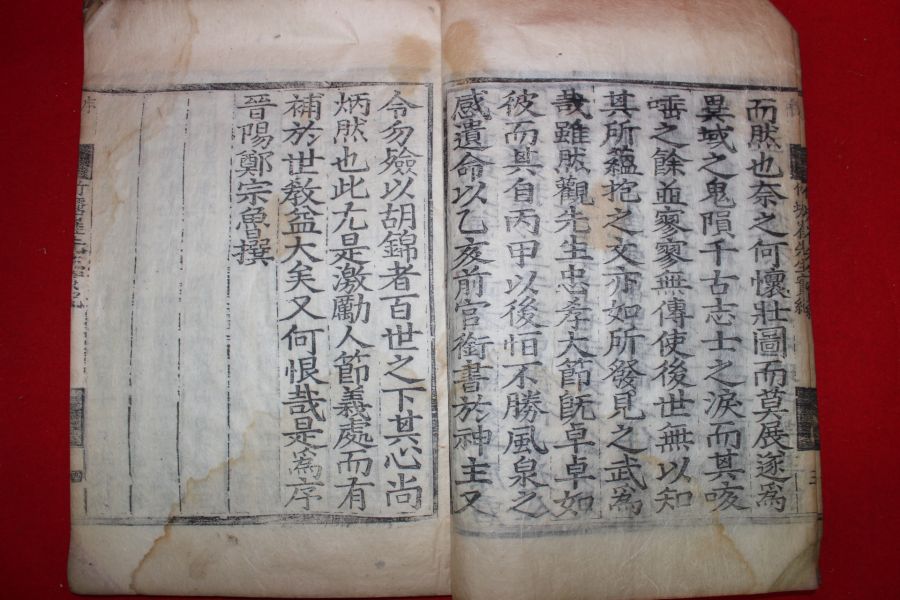 而然也奈之何懷壯圖而莫展遂爲
異域之鬼隕千古志士之淚而其咳
唾之餘並寥寥無傳使後世無以知
其所蘊抱之文亦如所發見之武爲
哉雖然觀先生忠孝大節旣卓卓如
彼而其自丙甲以後怛不勝風泉之
感遺命以乙亥前官銜書於神主又
令勿殮以胡錦者百世之下其心尚
炳然也此尤是激勵人節義處而有
補於世敎益大矣又何恨哉是爲序
晉陽鄭宗魯撰